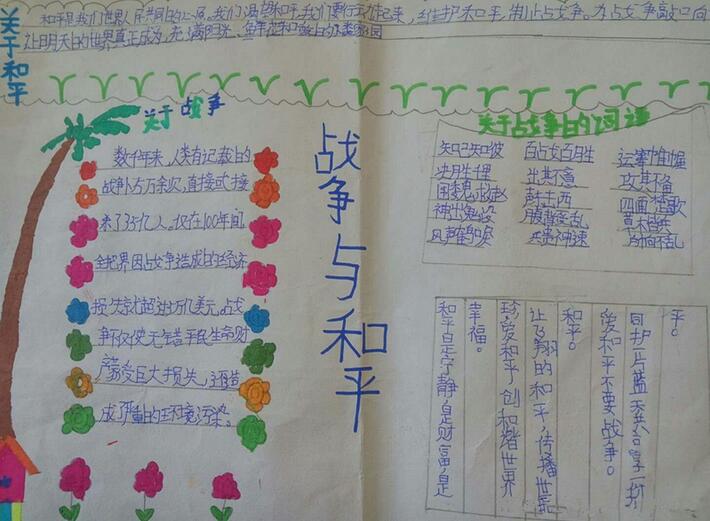 关于和平
和平是我们世界人民共同的心愿,我们渴望和平,我们要行动起来,维护和平,制止战争。为战争敲
让明天的世界真正成为充满阳光、鲜花和
关于战争
数千年来,人类有记载的
战争上万余次,直接或
来了35亿人,仅在100年间
全世界因战争造成的经济
损失就超过万亿美元,战
争不仅使无辜平民生命财
产蒙受巨大损失,还造
成了严重的环境污染。
战争与和平
关于战争的词语
知己知彼 百战百胜 运筹帷幄
决胜千里 出其不意 攻其不备
围魏救赵 声东击西 四面楚歌
神出鬼没 腹背受乱 草木皆兵
风声鹤唳 兵贵神速 所向不乱
平。
同护正益共享一份
爱和平不要战争。
和平。
让飞翔的和平,传播世
珍爱和平,创和谐世界
幸福。
和平是宁静,是财富,是